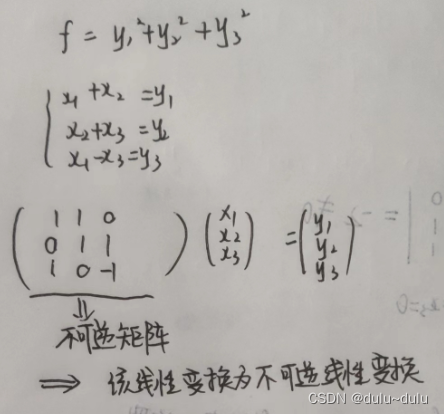 f = y₁²+y₂²+y₃²
x₁+x₂ =y₁
x₂+x₃ =y₂
x₁-x₃=y₃
( 1 1 0 ) ( x₁ ) = ( y₁ )
0 1 1 x₂ y₂
1 0 -1 x₃ y₃
⇓
不可逆矩阵
⇒ 该线性变换为不可逆线性变换
CSDN @dulu~dulu